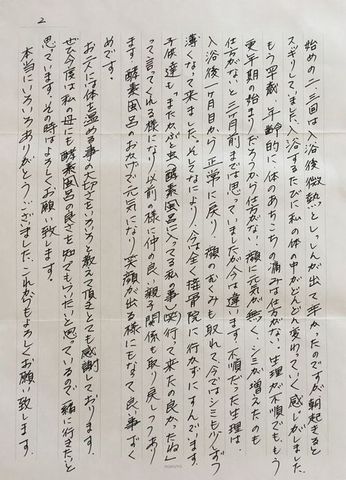 2
始めの一、二、三回は入浴後、微熱としっしんが出て辛かったのですが、朝起きると
スッキリしていました。入浴するたびに、私の体の中がどんどん変わっていく感じがしました。
もう四十歳、年齢的に体のあちこちの痛みは仕方がない。生理が不順でも、もう
更年期の始まりだろうから仕方がない。顔に元気が無く、シミが増えたのも
仕方がないと三ヶ月前までは思っていましたが、今は違います。不順だった生理は、
入浴後一ヶ月目から正常に戻り、顔のむくみも取れて、今ではシミも少しずつ
薄くなって来ました。そしてなにより、今は全く接骨院に行かずにすんでいます。
子供達も、「またかぶと虫(酵素風呂に入ってる私の事)笑 行って来たの、良かったね」
って言ってくれる様になり、以前の様に仲の良い親子関係も取り戻しつつあり
ます。酵素風呂のおかげで元気になり、笑顔が出る様にもなて、良い事ずく
めです。
お二人には体を温める事の大切さをいろいろと教えて頂き、とても感謝しております。
ぜひ今度は私の母にも酵素風呂の良さを知てもらいたいと思っているので、一緒に行きたいと
思っています。その時はよろしくお願い致します。
本当にいろいろありがとうございました。これからもよろしくお願い致します。